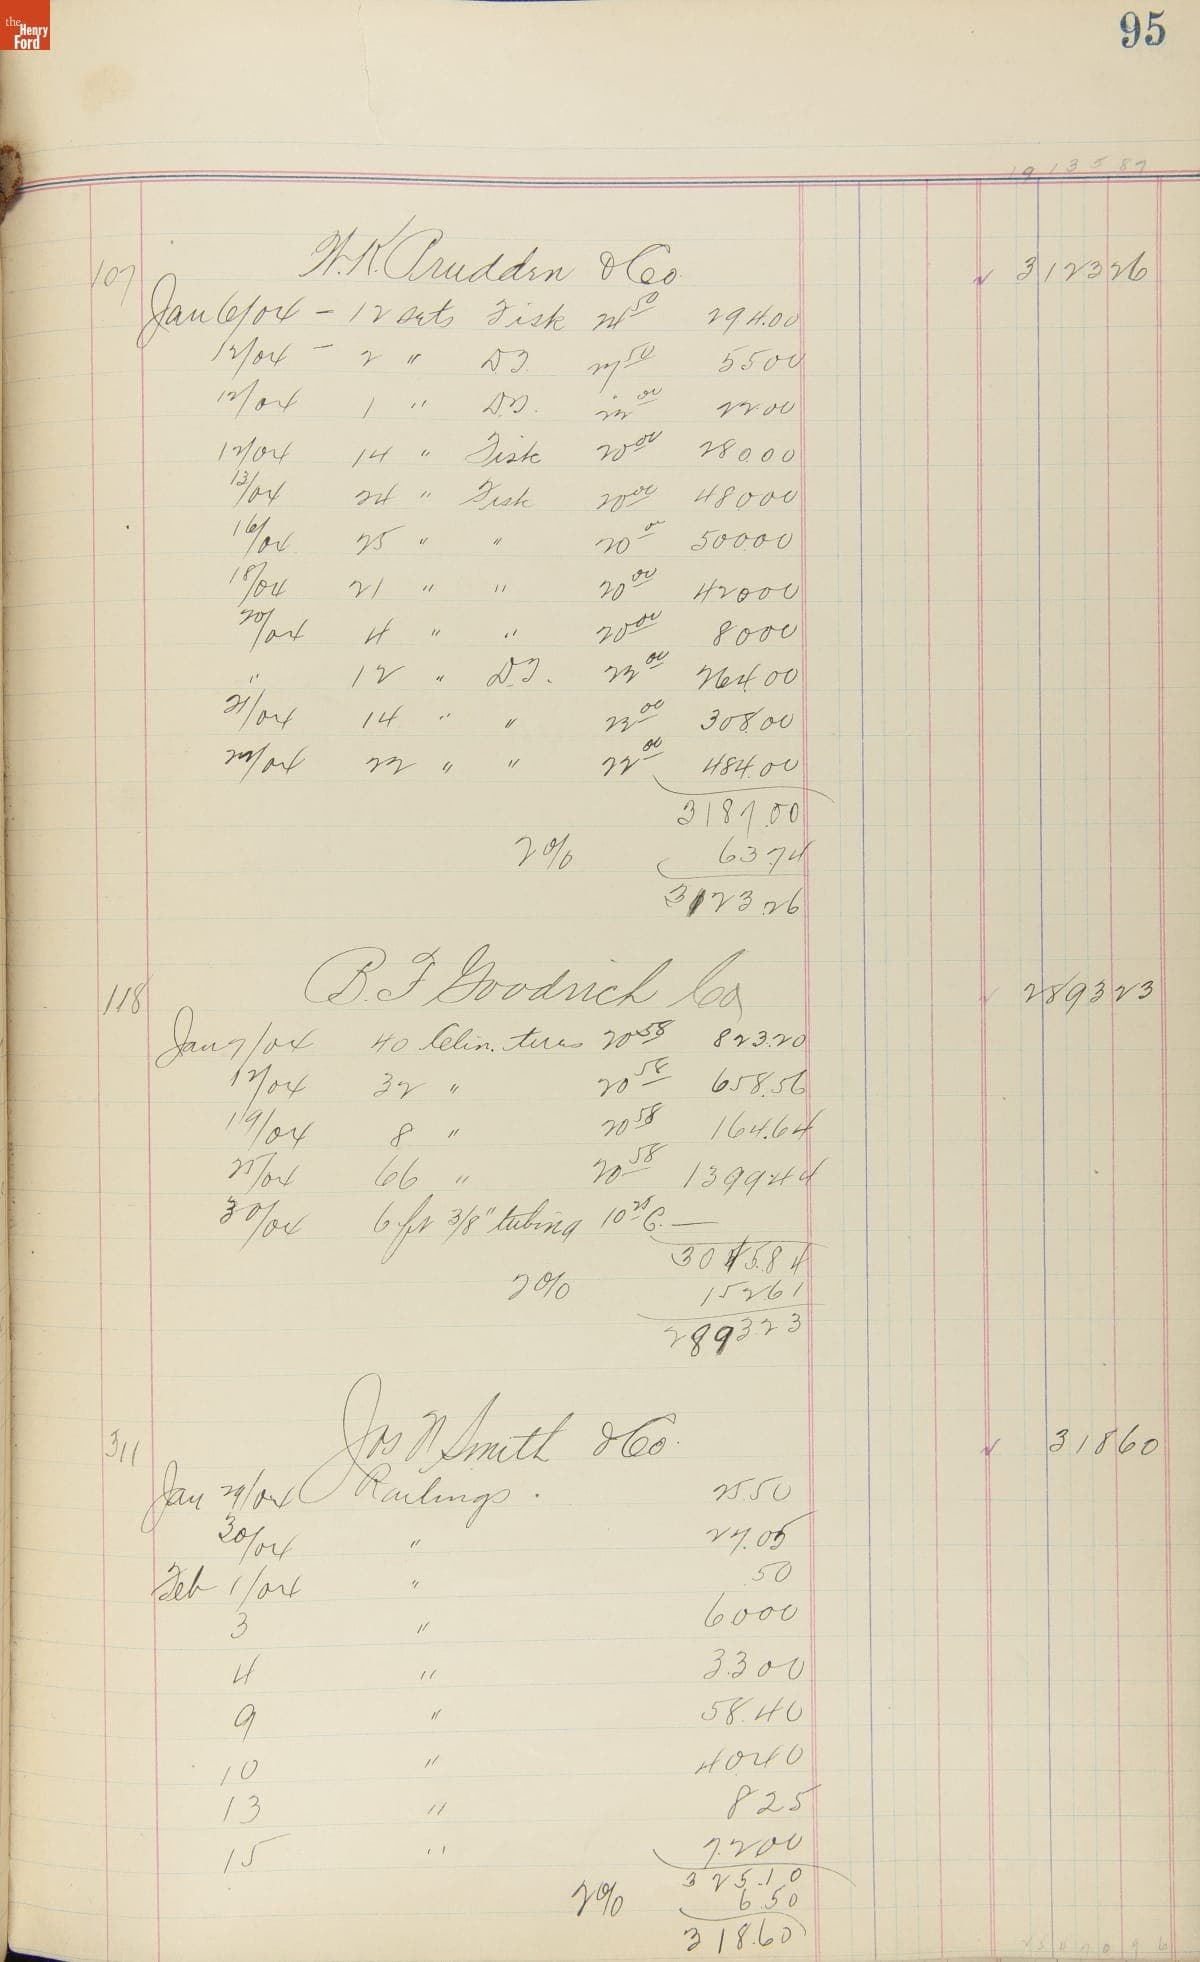 the Henry Ford
95
1913587
107 W.K. Prudden & Co. 312326
Jan 6/04 - 12 sets Fisk 24 50 294.00
12/04 - 2 " D.T. 27 50 5500
12/04 1 " D.T. 22 00 22.00
12/04 14 " Fisk 20 00 28000
13/04 24 " Fisk 20 00 48000
16/04 25 " " 20 00 50000
18/04 21 " " 20 00 42000
20/04 4 " " 20 00 8000
" 12 " D.T. 22 00 264.00
21/04 14 " " 22 00 308.00
22/04 22 " " 22 00 484.00
3187.00
2% 63.74
3123.26
118 B.F Goodrich Co 289323
Jan 7/04 40 Clin. tires 20 58 823.20
12/04 32 " 20 58 658.56
19/04 8 " 20 58 164.64
25/04 66 " 20 58 139944
30/04 6 ft 3/8" tubing C. —
3045.84
2% 15261
289323
311 Jos N Smith & Co. 31860
Jan 29/04 Railings. 25.50
30/04 " 27.05
Feb 1/04 " .50
3 " 6000
4 " 3300
9 " 58.40
10 " 4040
13 " 825
15 " 7200
325.10
2% 6.50
318.60